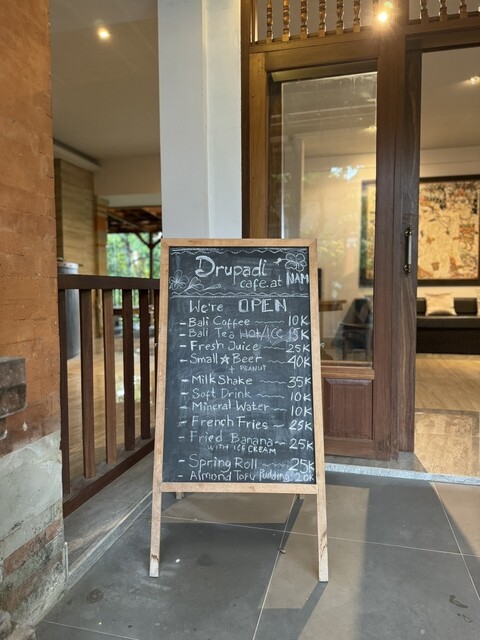 Drupadi
cafe.at NAM
We're OPEN
- Bali Coffee 10K
- Bali Tea HOT/ICE 15K
- Fresh Juice 25K
- Small ☆ Beer 40K
+ PEANUT
- MilkShake 35K
- Soft Drink 10K
- Mineral Water 10K
- French Fries 25K
- Fried Banana 25K
WITH ICE CREAM
- Spring Roll 25K
- Almond Tofu Pudding 20K